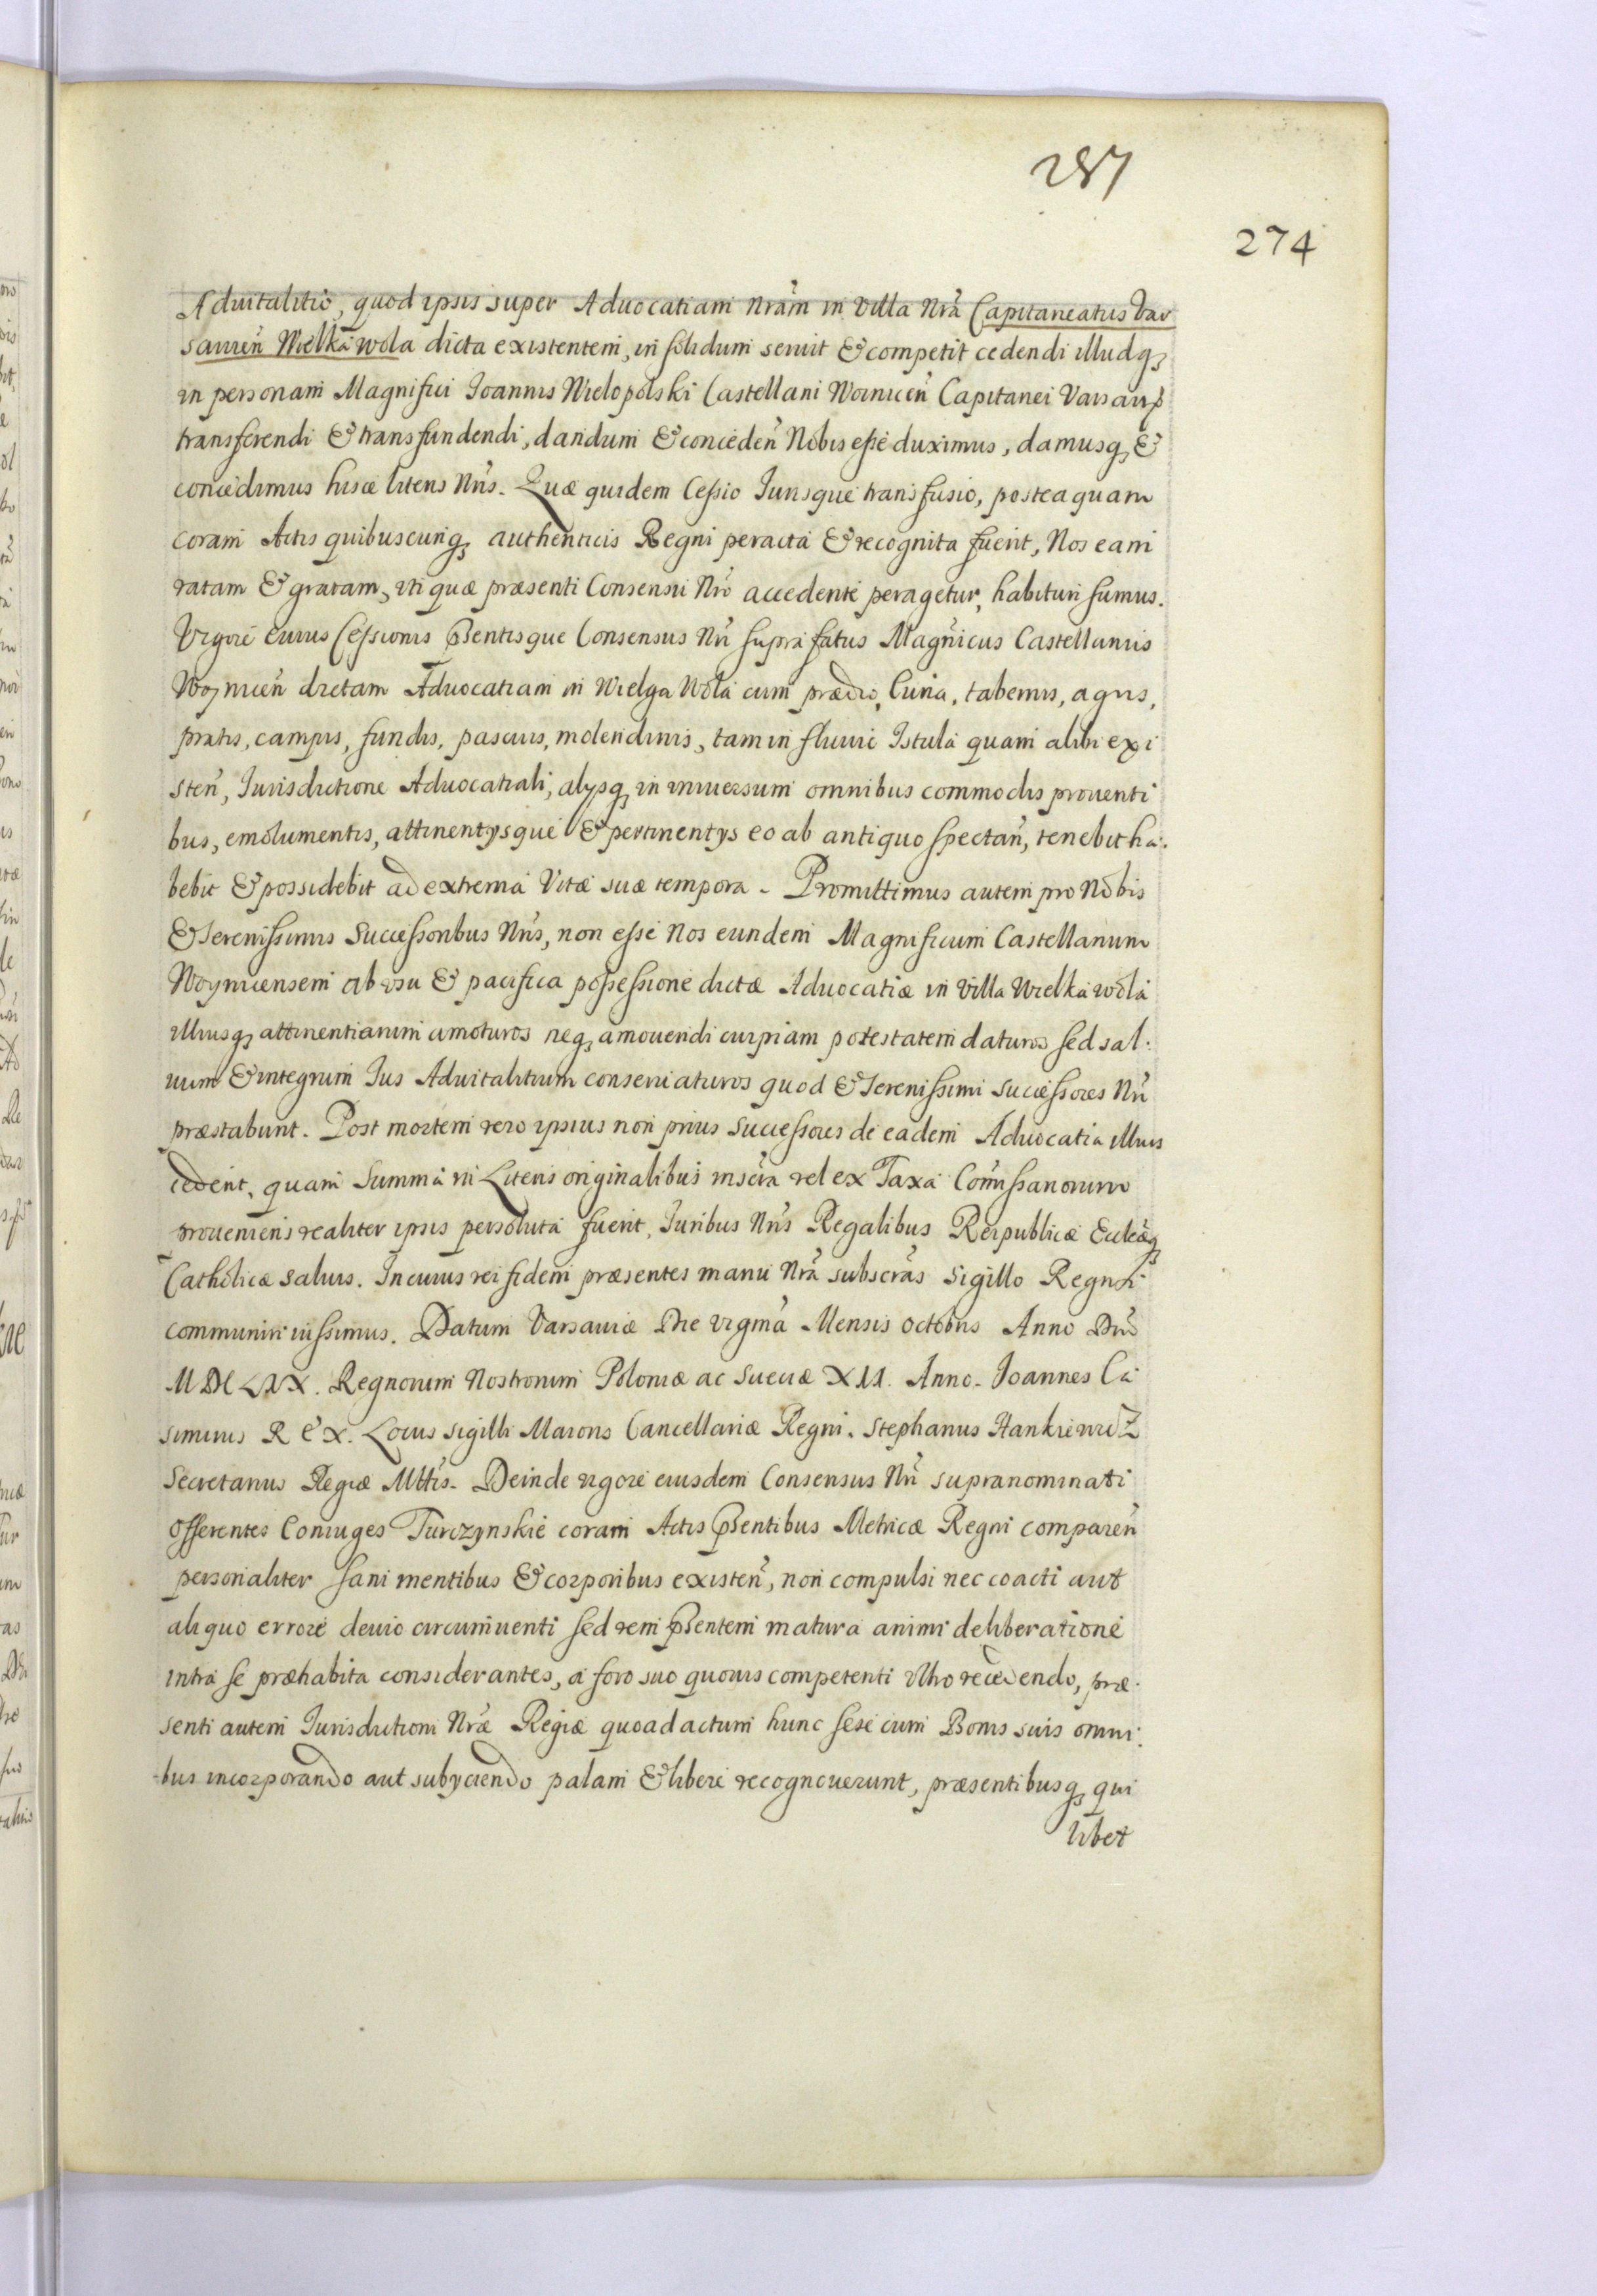 287
274
Aduitalitio, quod ipsis super Aduocatiam Nram in Villa Nra Capitaneatus Var
sauien Wielka wola dicta existentem, in solidum seruit & competit cedendi illudq,
in personam Magnifici Joannis Wielopolski Castellani Woinicen Capitanei Varsauień
transferendi & transfundendi, dandum & conceden Nobis esse duximus, damusq, &
concedimus hisce literis Nris. Quæ quidem Cessio Jurisque transfusio, posteaquam
coram Actis quibuscunq, authenticis Regni peracta & recognita fuerit, Nos eam
ratam & gratam, uti quæ præsenti Consensu Nro accedente peragetur, habituri sumus.
Vigore cuius Cessionis pñtisque Consensus Nri supra fatus Magñicus Castellanus
Woynicen dictam Aduocatiam in Wielga Wola cum prædio, Curia, tabernis, agris,
pratis, campis, fundis, pascuis, molendinis, tam in fluuio Istula quam alibi exi
sten, Jurisdictione Aduocatiali, alijsq, in vniuersum omnibus commodis prouenti
bus, emolumentis, attinentijsque & pertinentijs eo ab antiquo spectan, tenebit ha.
bebit & possidebit ad extrema Vitæ suæ tempora. Promittimus autem pro Nobis
& Serenissimis Successoribus Nris, non esse Nos eundem Magnificum Castellanum
Woynicensem ab vsu & pacifica possessione dictæ Aduocatiæ in Villa Wielka wola
illiusq, attinentiarum amoturos neq, amouendi cuipiam potestatem daturos sed sal.
uum & integrum Jus Aduitalitium conseruaturos quod & Serenissimi Successores Nri
præstabunt. Post mortem vero ipsius non prius Successores de eadem Aduocatia illius
cedent, quam Summa in Literis originalibus inscra vel ex Taxa Comissariorum
proueniens realiter ipsis persoluta fuerit, Juribus Nris Regalibus Reipublicæ Eccleæq,
Catholicæ saluis. In cuius rei fidem præsentes manu Nra subscras Sigillo Regni
communiri iussimus. Datum Varsauiæ Die vigma Mensis Octobris Anno Dni
MDCLIX. Regnorum Nostrorum Poloniæ ac Sueciæ XII. Anno. Joannes Ca
simirus REX. Locus Sigilli Maioris Cancellariæ Regni. Stephanus Hankiewicz
Secretarius Regiæ Mttis. Deinde vigore eiusdem Consensus Nri supranominati
Offerentes Coniuges Turczynskie coram Actis pñtibus Metricæ Regni comparen
personaliter sani mentibus & corporibus existen, non compulsi nec coacti aut
aliquo errore deuio circumuenti sed rem pñtem matura animi deliberatione
intra se præhabita considerantes, a foro suo quouis competenti vltro recedendo, præ.
senti autem Jurisdictioni Nræ Regiæ quoad actum hunc sese cum Bonis suis omni.
bus incorporando aut subyciendo palam & libere recognouerunt, præsentibusq, qui
libet